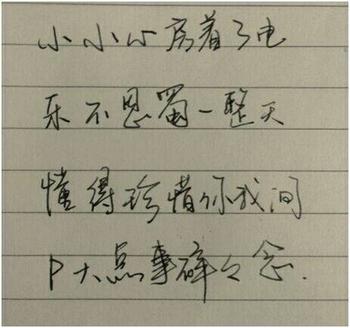 小小心房着了电
乐不思蜀一整天
懂得珍惜你我间
P大点事碎碎念.